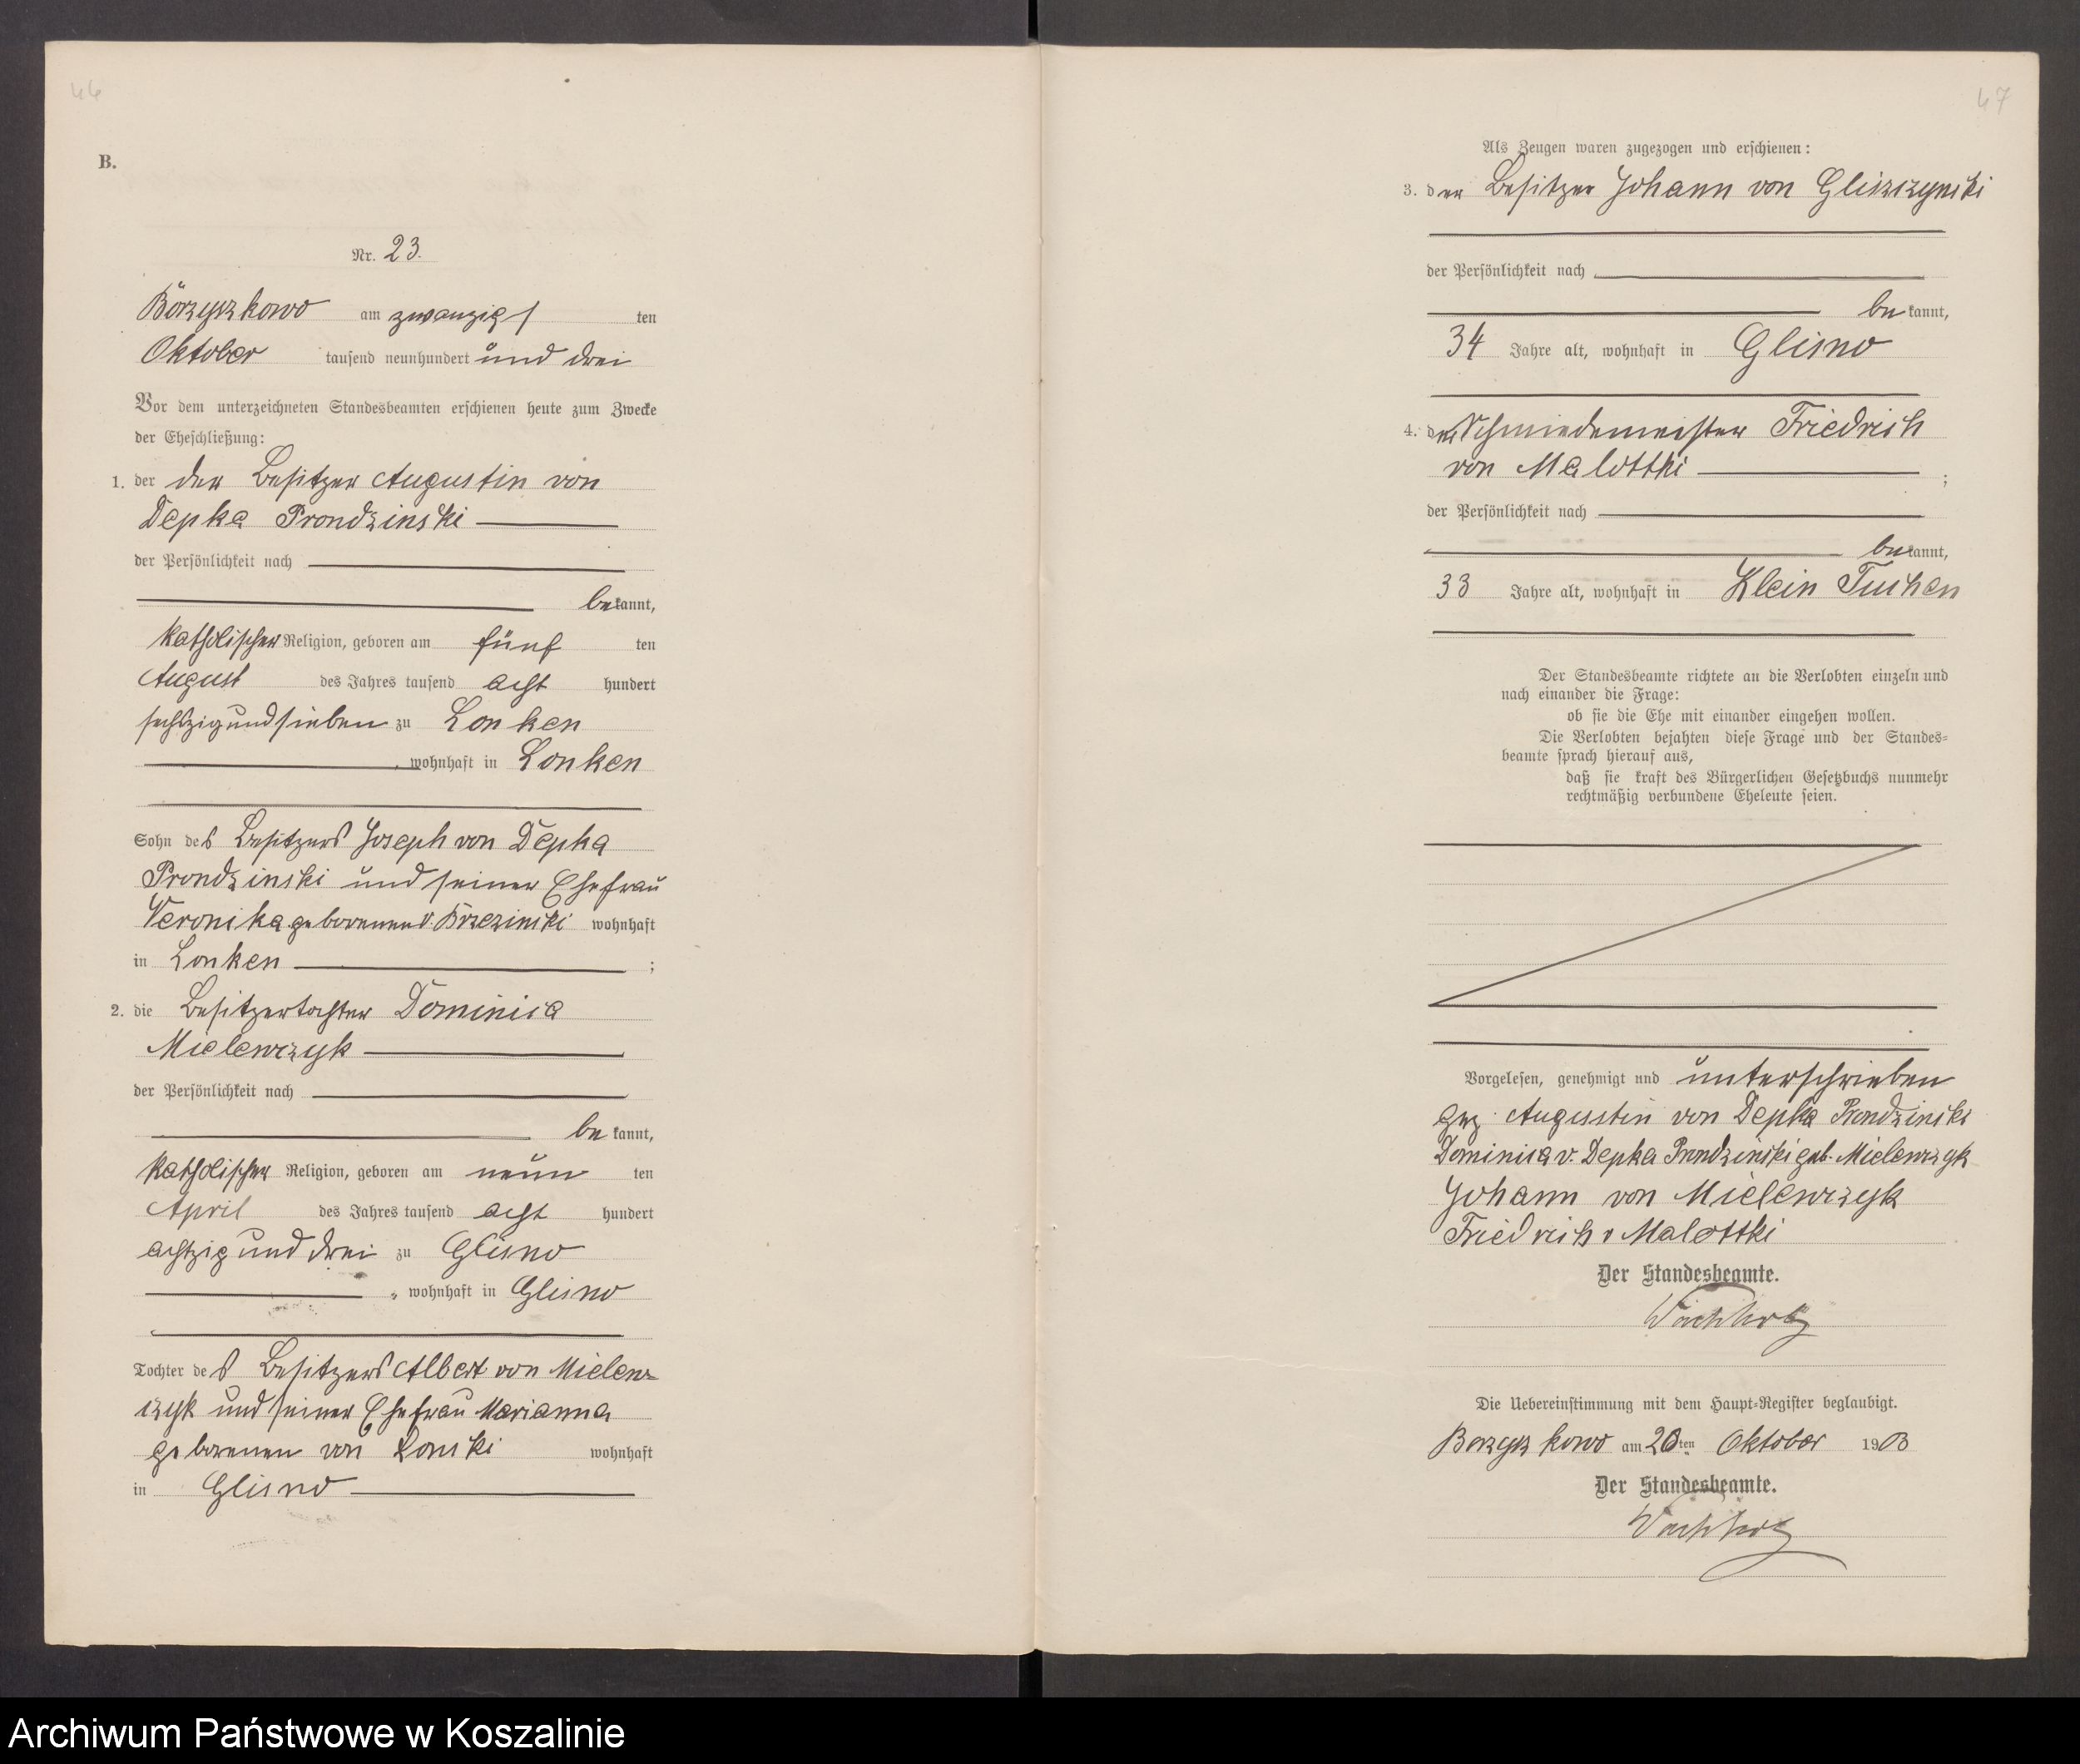 46
B.
Nr. 23.
Borzyszkowo am zwanzigsten
Oktober tausend neunhundert und drei
Vor dem unterzeichneten Standesbeamten erschienen heute zum Zwecke
der Eheschließung:
1. der der Besitzer Augustin von
Depka Prondzinski
der Persönlichkeit nach
bekannt,
katholischer Religion, geboren am fünf ten
August des Jahres tausend acht hundert
sechszig und sieben zu Lonken
, wohnhaft in Lonken
Sohn des Besitzers Joseph von Depka
Prondzinski und seiner Ehefrau
Veronika geborenen v. Brzezinski wohnhaft
in Lonken ;
2. die Besitzertochter Dominica
Mielewczyk
der Persönlichkeit nach
bekannt,
katholischer Religion, geboren am neun ten
April des Jahres tausend acht hundert
achtzig und drei zu Glisno
, wohnhaft in Glisno
Tochter des Besitzers Albert von Mielew-
czyk und seiner Ehefrau Marianna
geborenen von Lonski wohnhaft
in Glisno
47
Als Zeugen waren zugezogen und erschienen:
3. der Besitzer Johann von Gliszczynski
der Persönlichkeit nach
bekannt,
34 Jahre alt, wohnhaft in Glisno
4. der Schmiedemeister Friedrich
von Malottki ;
der Persönlichkeit nach
bekannt,
33 Jahre alt, wohnhaft in Klein Tuchen
Der Standesbeamte richtete an die Verlobten einzeln und
nach einander die Frage:
ob sie die Ehe mit einander eingehen wollen.
Die Verlobten bejahten diese Frage und der Standes-
beamte sprach hierauf aus,
daß sie kraft des Bürgerlichen Gesetzbuchs nunmehr
rechtmäßig verbundene Eheleute seien.
Vorgelesen, genehmigt und unterschrieben
gez. Augustin von Depka Prondzinski
Dominica v. Depka Prondzinski geb. Mielewczyk
Johann von Mielewczyk
Friedrich v Malottki
Der Standesbeamte.
Wachholz
Die Uebereinstimmung mit dem Haupt-Register beglaubigt.
Borzyszkowo am 20ten Oktober 1903
Der Standesbeamte.
Wachholz
Archiwum Państwowe w Koszalinie